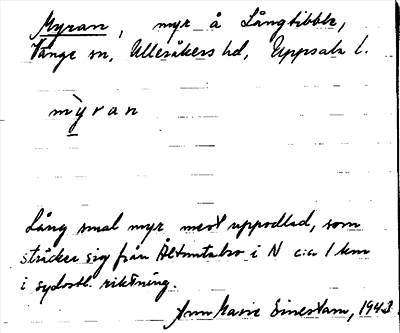 Myran, myr å Långtibble,
Vänge sn, Ulleråkers hd, Uppsala l.
mỳran
Lång smal myr mest uppodlad, som
sträcker sig från Åltomtabro i N c:a 1 km
i sydostl. riktning.
Ann Marie Einestam, 1943